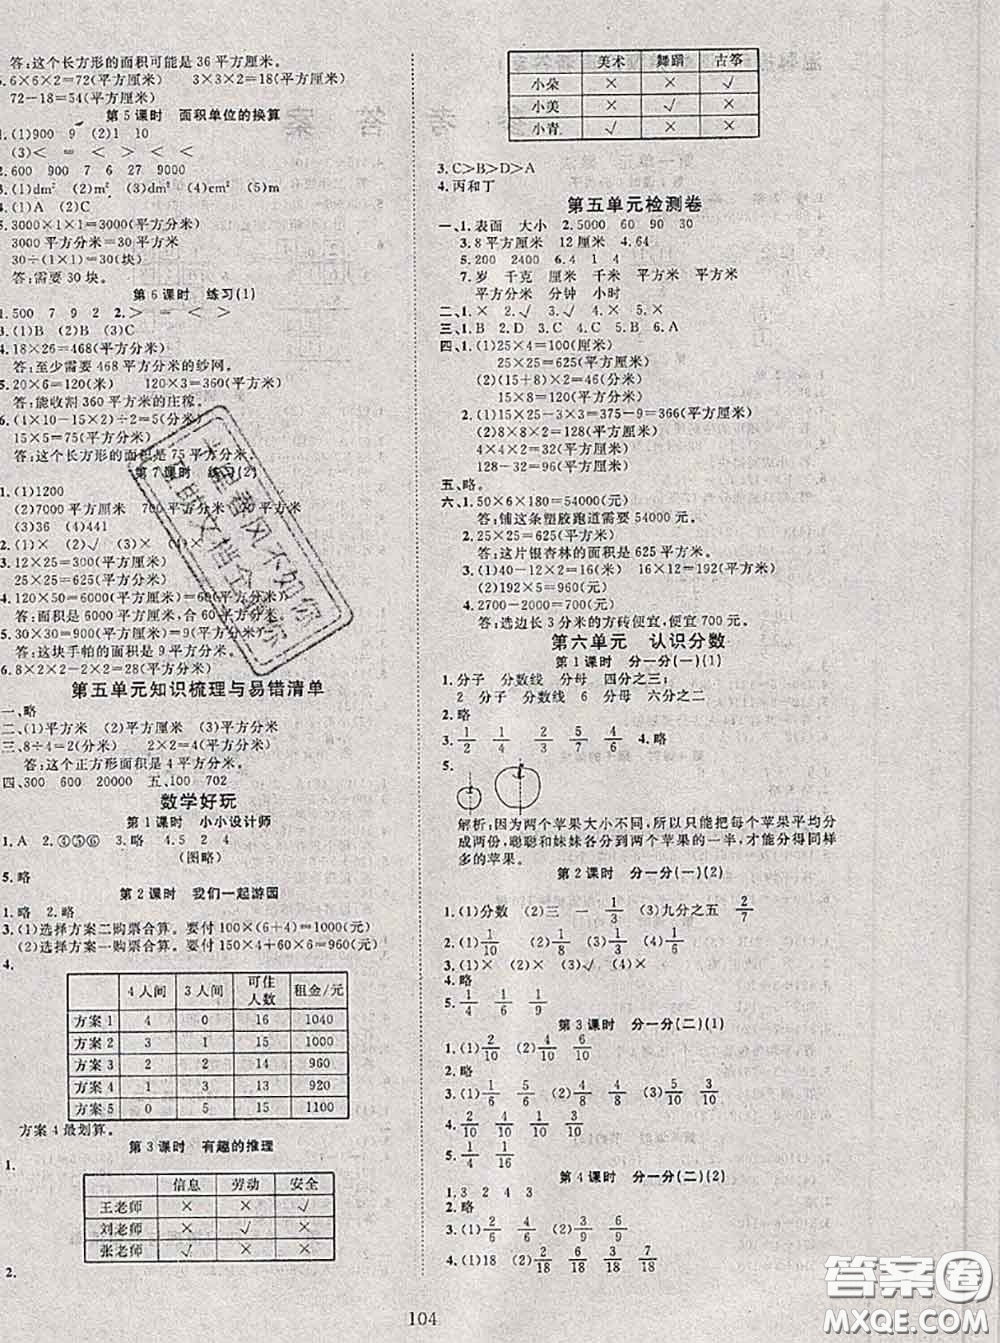 答:这个长方形的面积可能是 36 平方厘米。
5.6×6×2=72(平方厘米) 3×3×2=18(平方厘米)
72-18=54(平方厘米)
第 5 课时 面积单位的换算
1.(1)900 9 (2)1 10
(3)< = < < = <
2.600 900 7 6 27 9000
3.(1)dm² (2)m² (3)dm² (4)cm²
4.(1)A (2)C
5.3000×1×1=3000(平方分米)
3000平方分米=30 平方米
30÷(1×1)=30(块)
答:需要 30 块。
第 6 课时 练习(1)
1.500 8 7 9 2 2.> = < > <
3.(1)B (2)B (3)C
4.18×26=468(平方分米)
答:至少需要 468 平方分米的纱网。
5.20×6=120(米) 120×3=360(平方米)
答:能收割 360 平方米的庄稼。
6.(4×10-15×2)÷2=5(分米)
15×5=75(平方分米)
答:这个长方形的面积是 75 平方分米。
第 7 课时 练习(2)
1.(1)1200
(2)7000 平方厘米 700 平方厘米
(3)36 (4)441
2.(1)× (2)√ (3)×
3.12×25=300(平方厘米)
25×25=625(平方厘米)
4.120×50=6000(平方分米)
答:面积是 6000 平方分米,合 60 平方米。
5.30×30=900(平方厘米)
答:这块手帕的面积是 900 平方厘米。
6.8×8-2×2-2×2=56(平方厘米)
第五单元知识梳理与易错清单
一、略
二、(1)平方米 (2)平方厘米 (3)平方分米
三、8÷4=2(分米) 2×2=4(平方分米)
答:这个正方形面积是 4 平方分米。
四、300 600 20000 五、100 702
数学好玩
第 1 课时 小小设计师
1.A 2.④⑤⑥ 3.略 4.5 2 4
(图略)
5.略
第 2 课时 我们一起游园
1.略 2.略
3.(1)选择方案二购票合算。要付 100×(6+4)=1000(元)
(2)选择方案一购票合算。要付 150×4+60×6=960(元)
4.
4 人间 3 人间 可住人数 租金/元
方案 1 4 0 16 1040
方案 2 3 1 15 1000
方案 3 2 2 14 960
方案 4 1 3 13 920
方案 5 0 5 15 1100
方案 4 最划算。
第 3 课时 有趣的推理
1.
信息 劳动 安全
王老师 × × √
刘老师 × √ ×
张老师 √ × ×
2.
美术 舞蹈 古筝
小朵 × × √
小美 × √ ×
小青 √ × ×
3.C>B>D>A
4.丙和丁
第五单元检测卷
一、1.表面 大小 2.5000 60 90 30
3.8平方厘米 12厘米 4.64
5.200 2400 6.4 1 4
7.岁 千克 厘米 千米 平方米 平方米
平方分米 分钟 小时
二、1.× 2.√ 3.√ 4.× 5.×
三、1.B 2.D 3.C 4.B 5.A
四、1.(1)25×4=100(厘米)
25×25=625(平方厘米)
(2)(15+8)×2=46(分米)
15×8=120(平方分米)
2.(1)25×15-3×3=375-9=366(平方厘米)
(2)8×8×2=128(平方厘米)
4×4×2=32(平方厘米)
128-32=96(平方厘米)
五、略。
六、1.50×6×180=54000(元)
答:铺这条塑胶跑道需要 54000 元。
2.25×25=625(平方米)
答:这片银杏林的面积是 625 平方米。
3.(1)40-12×2=16(米) 16×12=192(平方米)
(2)192×5=960(元)
4.2700-2000=700(元)
答:选边长 3 分米的方砖便宜,便宜 700 元。
第六单元 认识分数
第 1 课时 分一分(一)(1)
1.分子 分数线 分母 四分之三;
2 分子 分数线 6 分母 六分之二
2.略
3. 1/2 1/4 1/3 1/6 4.略
5.
解析:因为两个苹果大小不同,所以只能把每个苹果平均分
成两份,聪聪和妹妹各分到两个苹果的一半,才能分得同样
多的苹果。
第 2 课时 分一分(一)(2)
1.(1)分数 (2)三 一 1/3 (3)九分之五 2/7
3.(1)× (2)× (3)√ (4)×
4.略
5. 1/4 1/6 1/9
第 3 课时 分一分(二)(1)
1.(1) 2/10 (2) 4/10
2.略
3.(1) 1/10 (2) 8/10 (3) 2/10 3/10 5/10
4.略
5. 1/6 1/4 1/16
第 4 课时 分一分(二)(2)
1.3 2 4 3
2.略
3.(1) 1/6 (2) 2/6 (3) 3/9 4/9
4.(1)18
104
答案圈
MXQE.COM